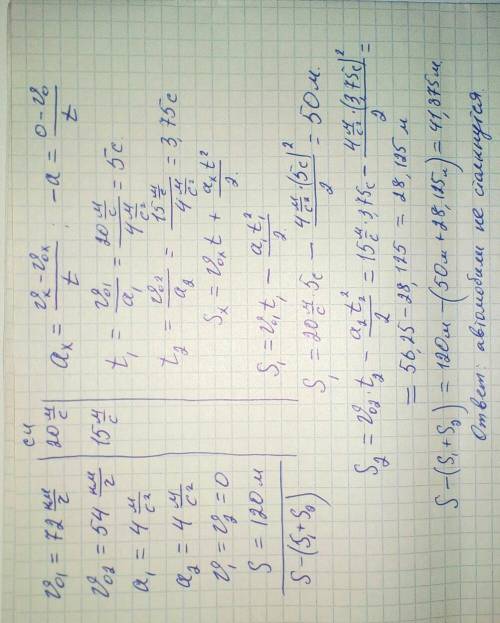 СИ
v₀₁ = 72 км/г
20 м/с
v₀₂ = 54 км/г
15 м/с
a₁ = 4 м/с²
a₂ = 4 м/с²
v₁ = v₂ = 0
S = 120 м
S − (S₁ + S₂)
aₓ = (vₓ − v₀ₓ)/t ; −a = (0 − v₀)/t
t₁ = v₀₁/a₁ = (20 м/с)/(4 м/с²) = 5 с.
t₂ = v₀₂/a₂ = (15 м/с)/(4 м/с²) = 3,75 с
Sₓ = v₀ₓ t + aₓt²/2.
S₁ = v₀₁t₁ − a₁t₁²/2.
S₁ = 20 м/с · 5с − (4 м/с² · (5с)²)/2 = 50 м.
S₂ = v₀₂ · t₂ − a₂t₂²/2 = 15 м/с · 3,75с − (4 м/с² · (3,75с)²)/2 =
= 56,25 − 28,125 = 28,125 м
S − (S₁ + S₂) = 120 м − (50 м + 28,125 м) = 41,875 м
Ответ: автомобили не столкнутся.